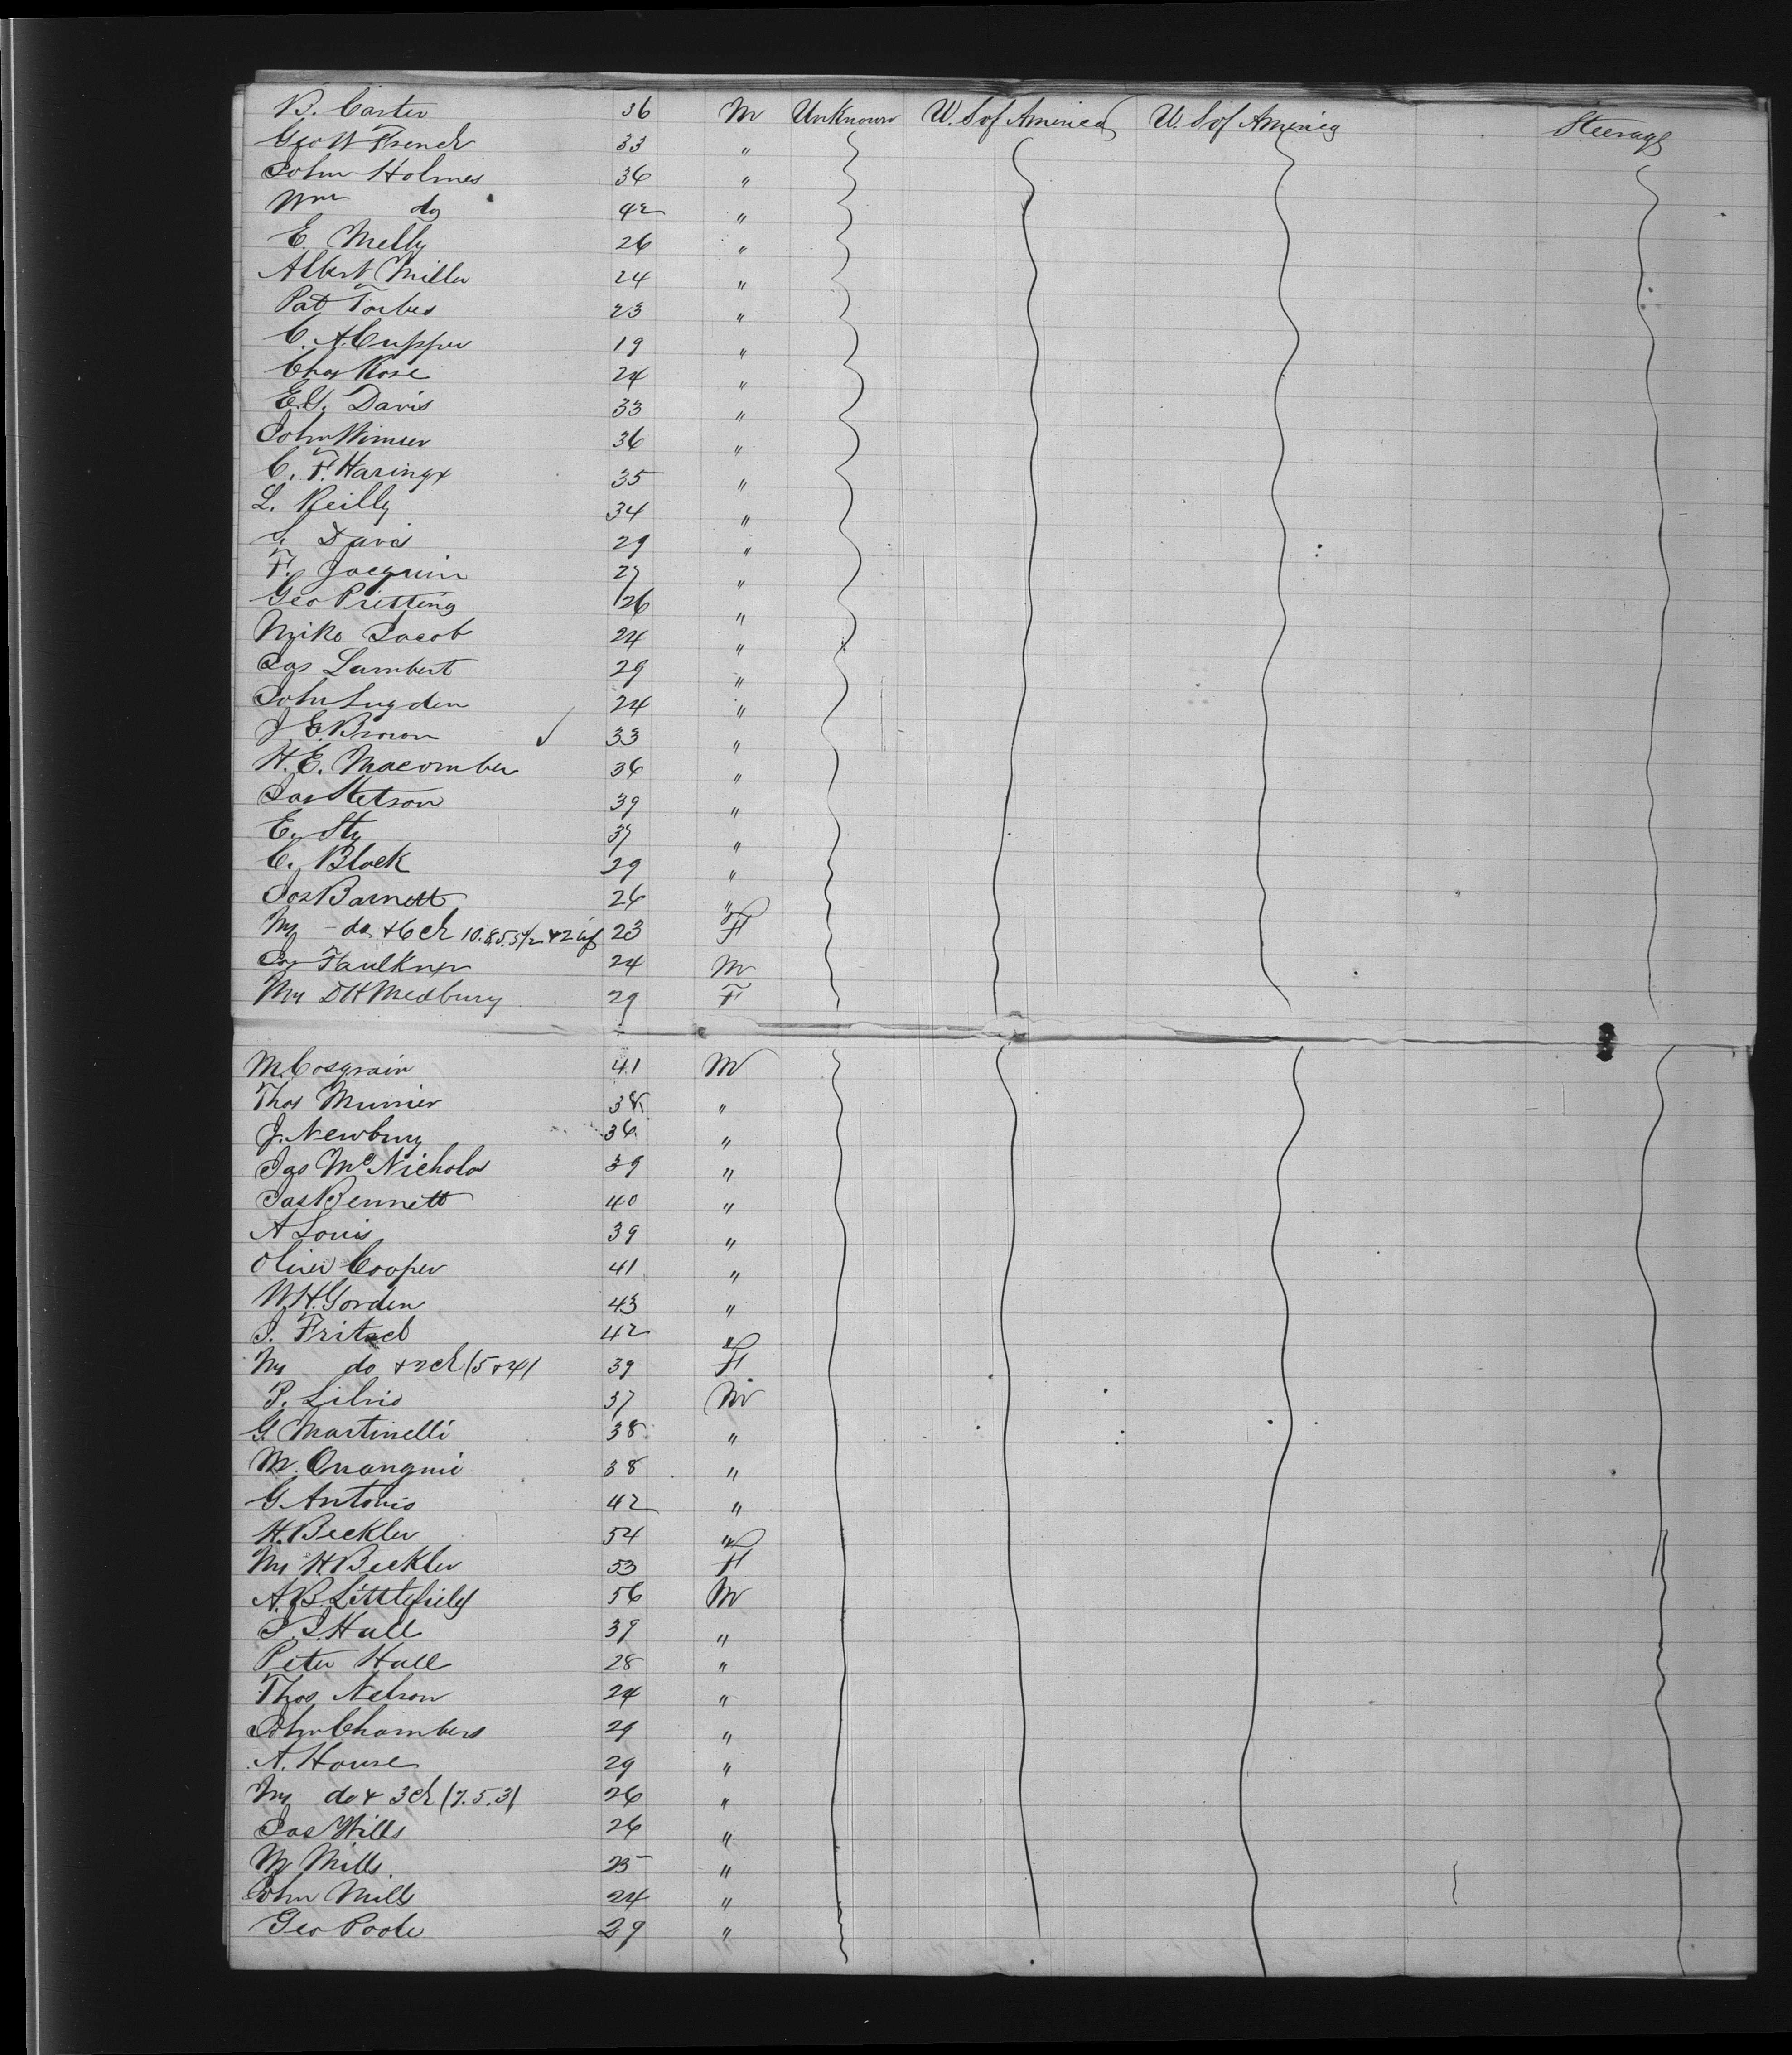 B. Carter 36 M Unknown U. S of America U. S of America Steerage
Geo W French 33 "
John Holmes 36 "
Wm do 42 "
E. Melly 26 "
Albert Miller 24 "
Pat Forbes 23 "
C. A. Cupper 19 "
Chas Rose 24 "
E. G. Davis 33 "
John Wimser 36 "
C. F. Haringx 35 "
L. Reilly 34 "
S. Davis 29 "
F. Jacquin 27 "
Geo Pritting 26 "
Mike Jacob 24 "
Jas Lambert 29 "
John Lugden 24 "
J E. Brown 33 "
H. E. Macomber 36 "
Jas Stetson 39 "
E. Sty 37 "
C. Block 29 "
Jos Barnett 26 "
Mrs do + 6 ch 10. 8. 5. 3 1/2 + 2 inf 23 F
Jos Faulkner 24 M
Mrs D H Medbury 29 F
M. Cosgrain 41 M
Thos Murrier 38 "
J. Newbury 36 "
Jas McNicholas 39 "
Jas Bennett 40 "
A Louis 39 "
Oliver Cooper 41 "
W. H. Gorden 43 "
J. Fritzel 42 "
Mrs do + 2 ch (5 + 4) 39 F
P. Silvio 37 M
G. Martinelli 38 "
M. 38 "
G. Antonio 42 "
H. Beckler 54 "
Mrs H. Beckler 53 F
A. B. Littlefield 56 M
J. J. Hall 39 "
Peter Hall 28 "
Thos Nelson 24 "
John Chambers 29 "
A. House 29 "
Mrs do + 3 ch (7. 5. 3) 26 "
Jas Wills 26 "
M Mills. 25 "
John Mills 24 "
Geo Poole 29 "